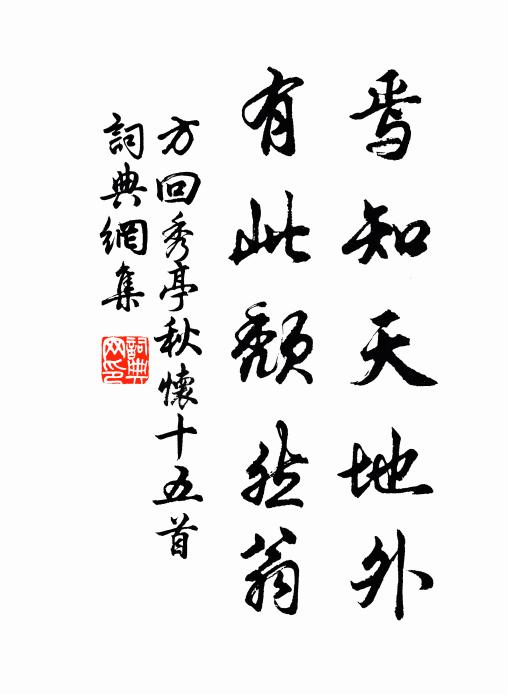 焉知天地外
有此頹然翁
方回秀亭秋懷十五首
詞典網集
詞典网印